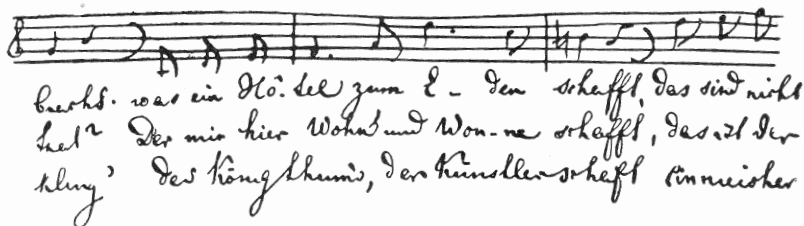 was ein Hô-tel zum E - den schafft, das sind nicht
Der mir hier Wohn' und Won-ne schafft, das ist der
des Königthums, der Künstlerschaft